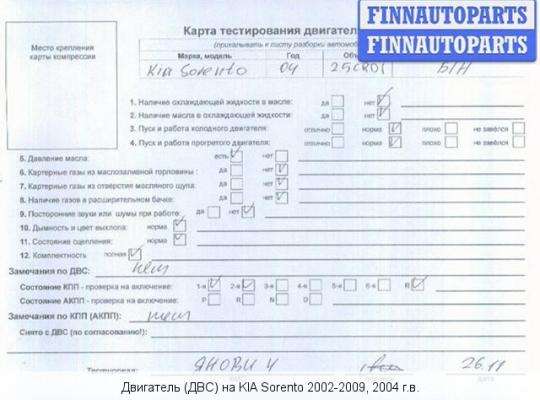 Карта тестирования двигателя
FINNAUTOPARTS
FINNAUTOPARTS
Место крепления
карты компрессии
(прикалывать к листу разборки автомоб
Марка, модель Год Объ
Kia Sorento 04 2.5CRDI Б/Н
1. Наличие охлаждающей жидкости в масле: да нет
2. Наличие масла в охлаждающей жидкости: да нет
3. Пуск и работа холодного двигателя: отлично норма плохо не завёлся
4. Пуск и работа прогретого двигателя: отлично норма плохо не завёлся
5. Давление масла: есть нет
6. Картерные газы из маслозаливной горловины: да нет
7. Картерные газы из отверстия масляного щупа: да нет
8. Наличие газов в расширительном бачке: да нет
9. Посторонние звуки или шумы при работе: да нет
10. Дымность и цвет выхлопа: норма
11. Состояние сцепления: норма
12. Комплектность полная
Замечания по ДВС: нет
Состояние КПП - проверка на включение: 1-я 2-я 3-я 4-я 5-я 6-я R
Состояние АКПП - проверка на включение: P R N D
Замечания по КПП (АКПП): нет
Снято с ДВС (по согласованию!):
ЯНОВИЧ 26.11
Двигатель (ДВС) на KIA Sorento 2002-2009, 2004 г.в.